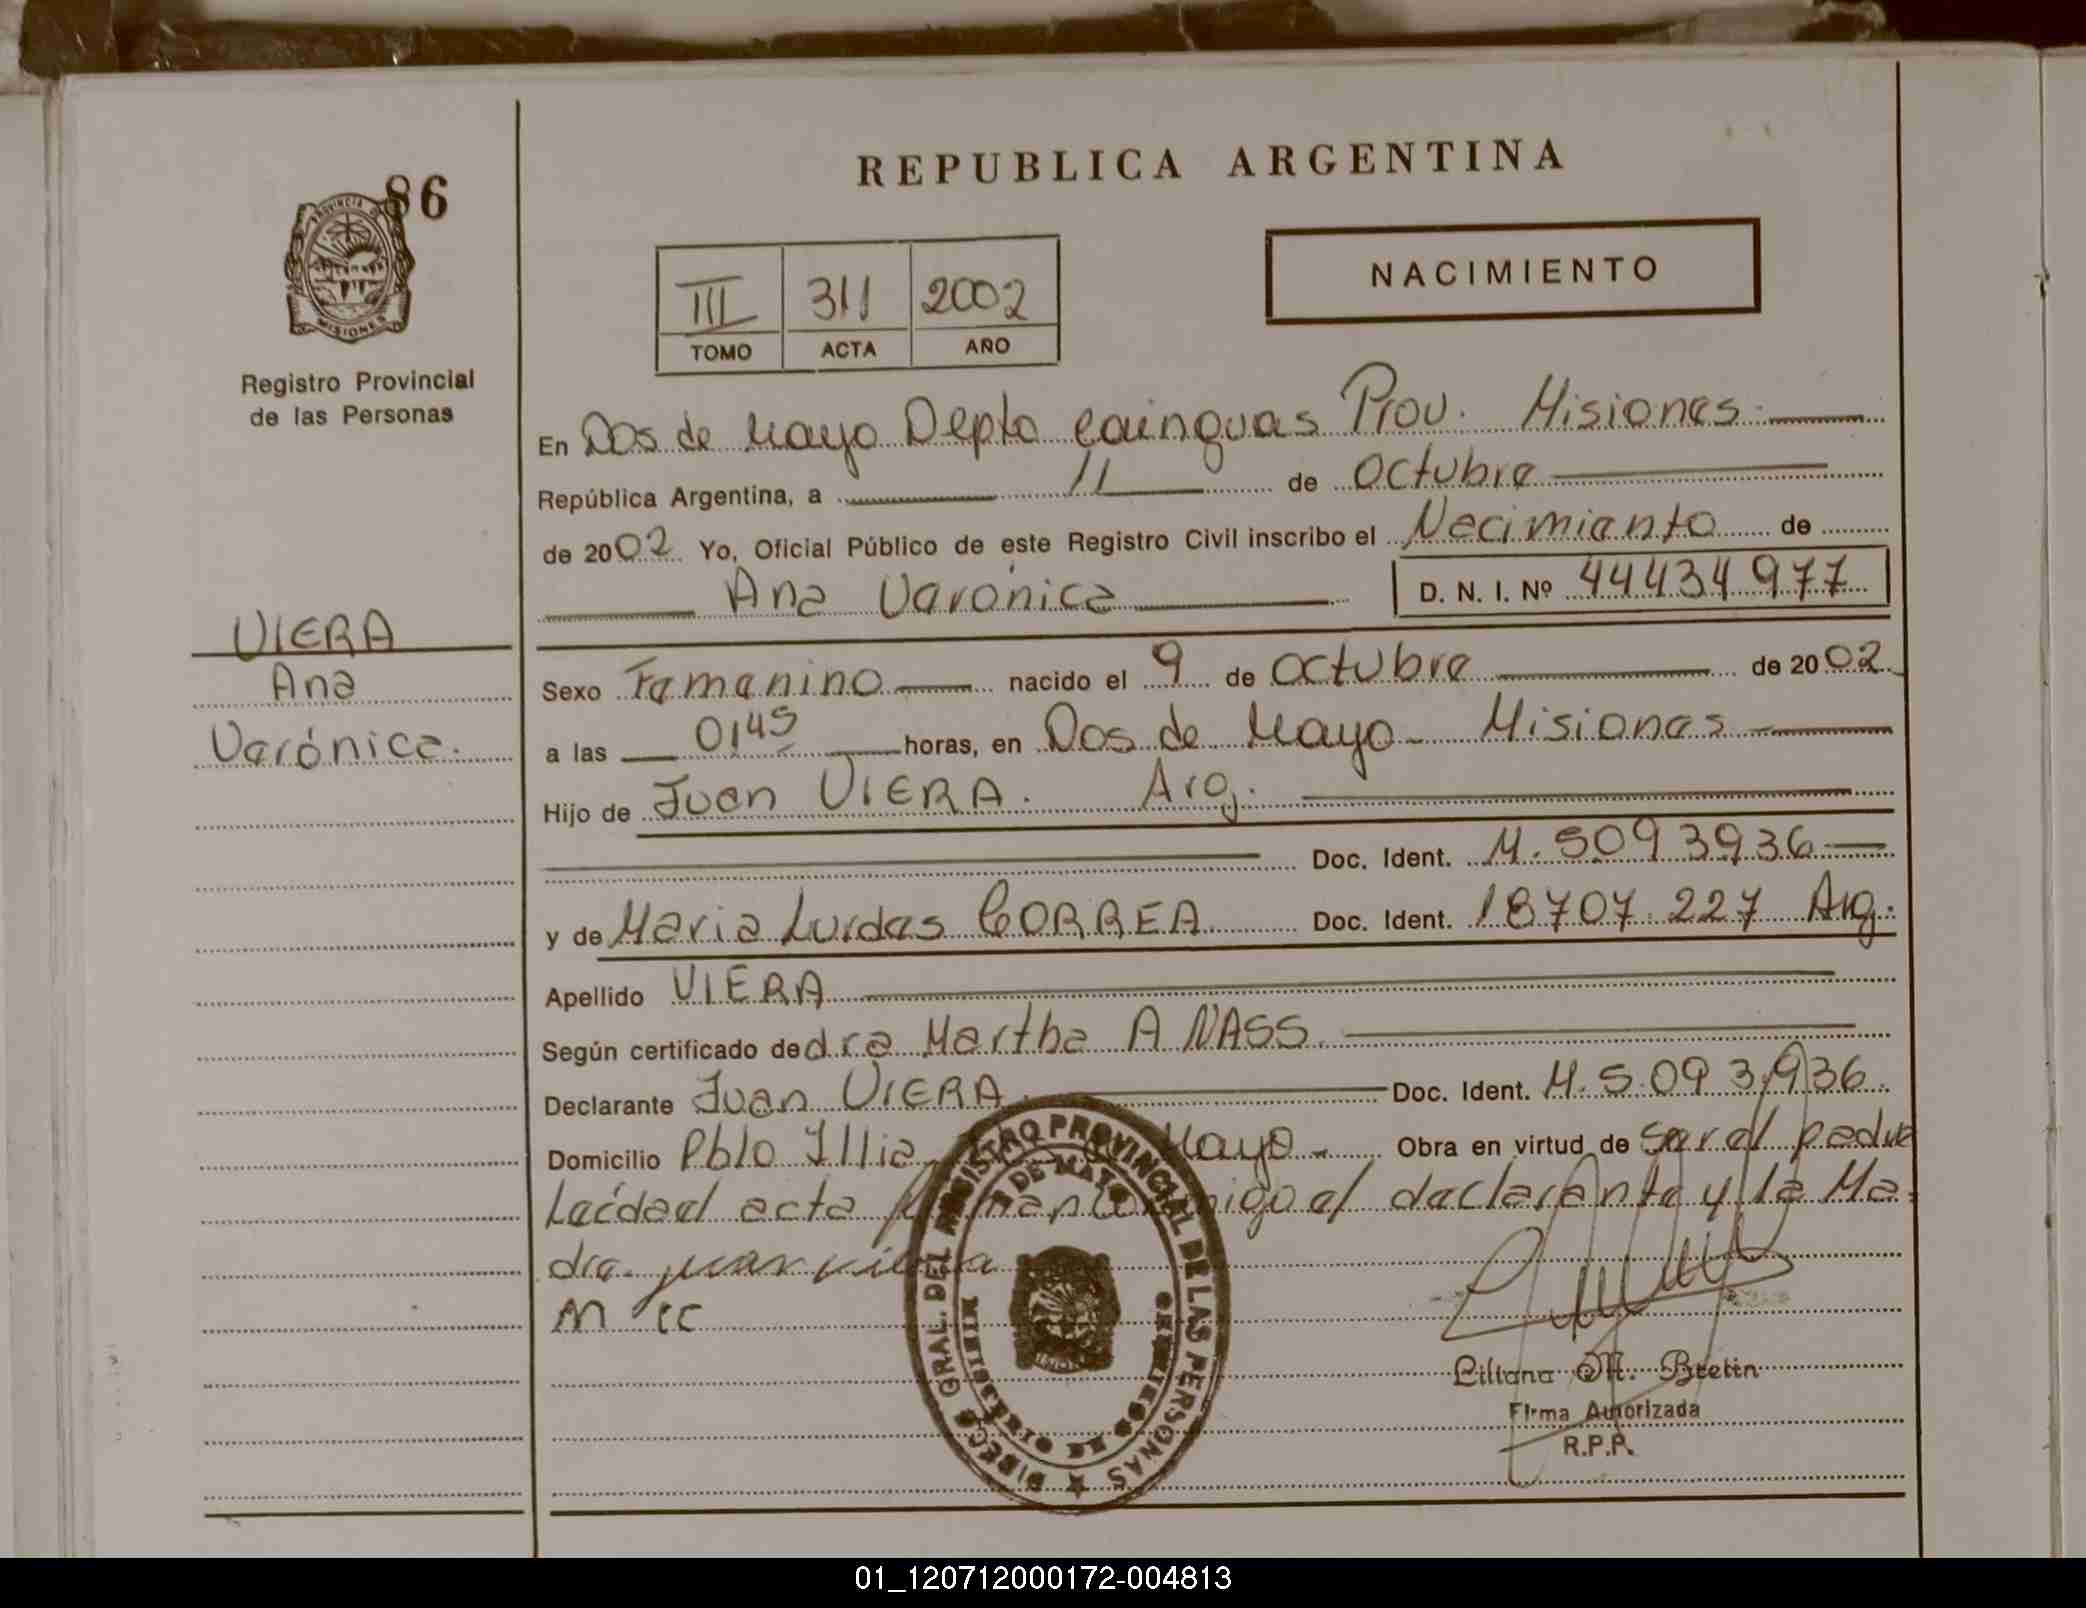 REPUBLICA ARGENTINA
86
PROVINCIA DE
MISIONES
Registro Provincial
de las Personas
III 311 2002
TOMO ACTA AÑO
NACIMIENTO
En Dos de Mayo Depto Cainguas Prov. Misiones.
República Argentina, a 11 de Octubre
de 2002 Yo, Oficial Público de este Registro Civil inscribo el Nacimiento de
Ana Verónica D. N. I. Nº 44434977
VIERA
Ana
Verónica.
Sexo Femenino nacido el 9 de Octubre de 2002
a las 0145 horas, en Dos de Mayo - Misiones
Hijo de Juan VIERA. Arg.
Doc. Ident. M. 5093936
y de Maria Lurdes CORREA. Doc. Ident. 18707.227 Arg.
Apellido VIERA
Según certificado de dra Martha A NASS.
Declarante Juan VIERA. Doc. Ident. M. 5.093.936.
Domicilio Pblo Illia Mayo - Obra en virtud de ser el padre
Leídael acta el declarante y la Ma-
dre. juan viera
M cc
DIRECC. GRAL. DEL REGISTRO PROVINCIAL DE LAS PERSONAS
2 DE MAYO
MISIONES
Liliana M. Bretin
Firma Autorizada
R.P.P.
01_120712000172-004813